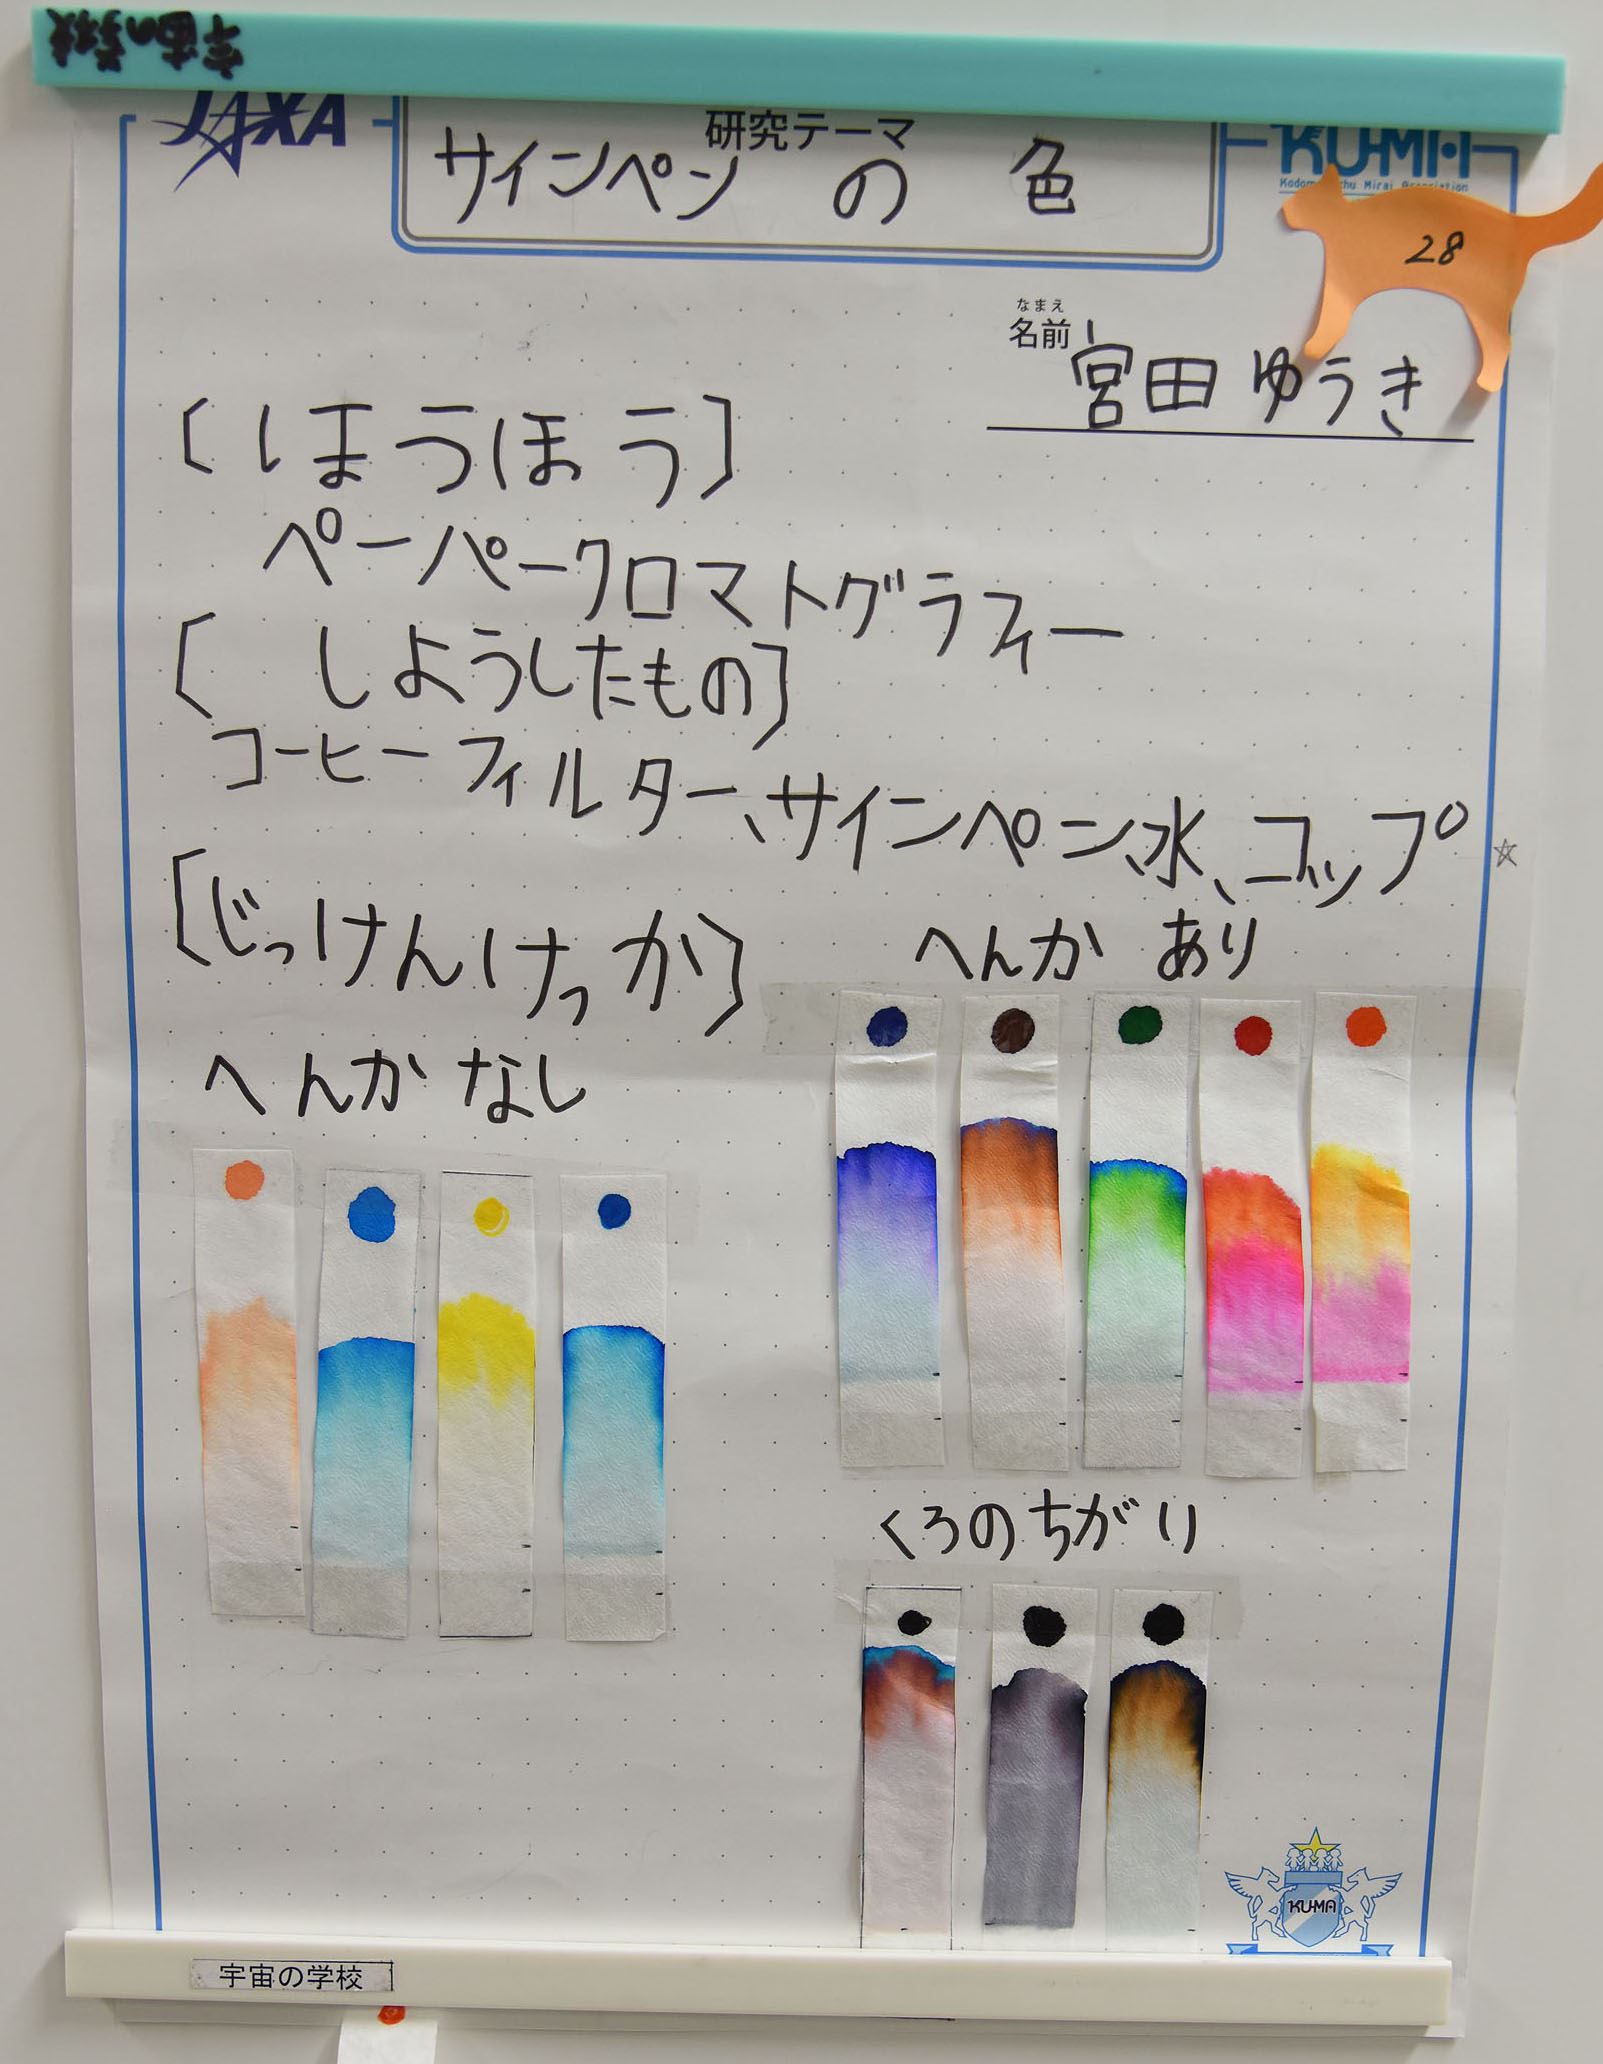 宇宙の学校
JAXA
研究テーマ
サインペン の 色
KU-MA
28
なまえ
名前 宮田 ゆうき
〔ほうほう〕
ペーパークロマトグラフィー
〔しようしたもの〕
コーヒーフィルター、サインペン、水、コップ
〔じっけんけっか〕
へんか あり
へんか なし
くろのちがい
KU-MA
宇宙の学校